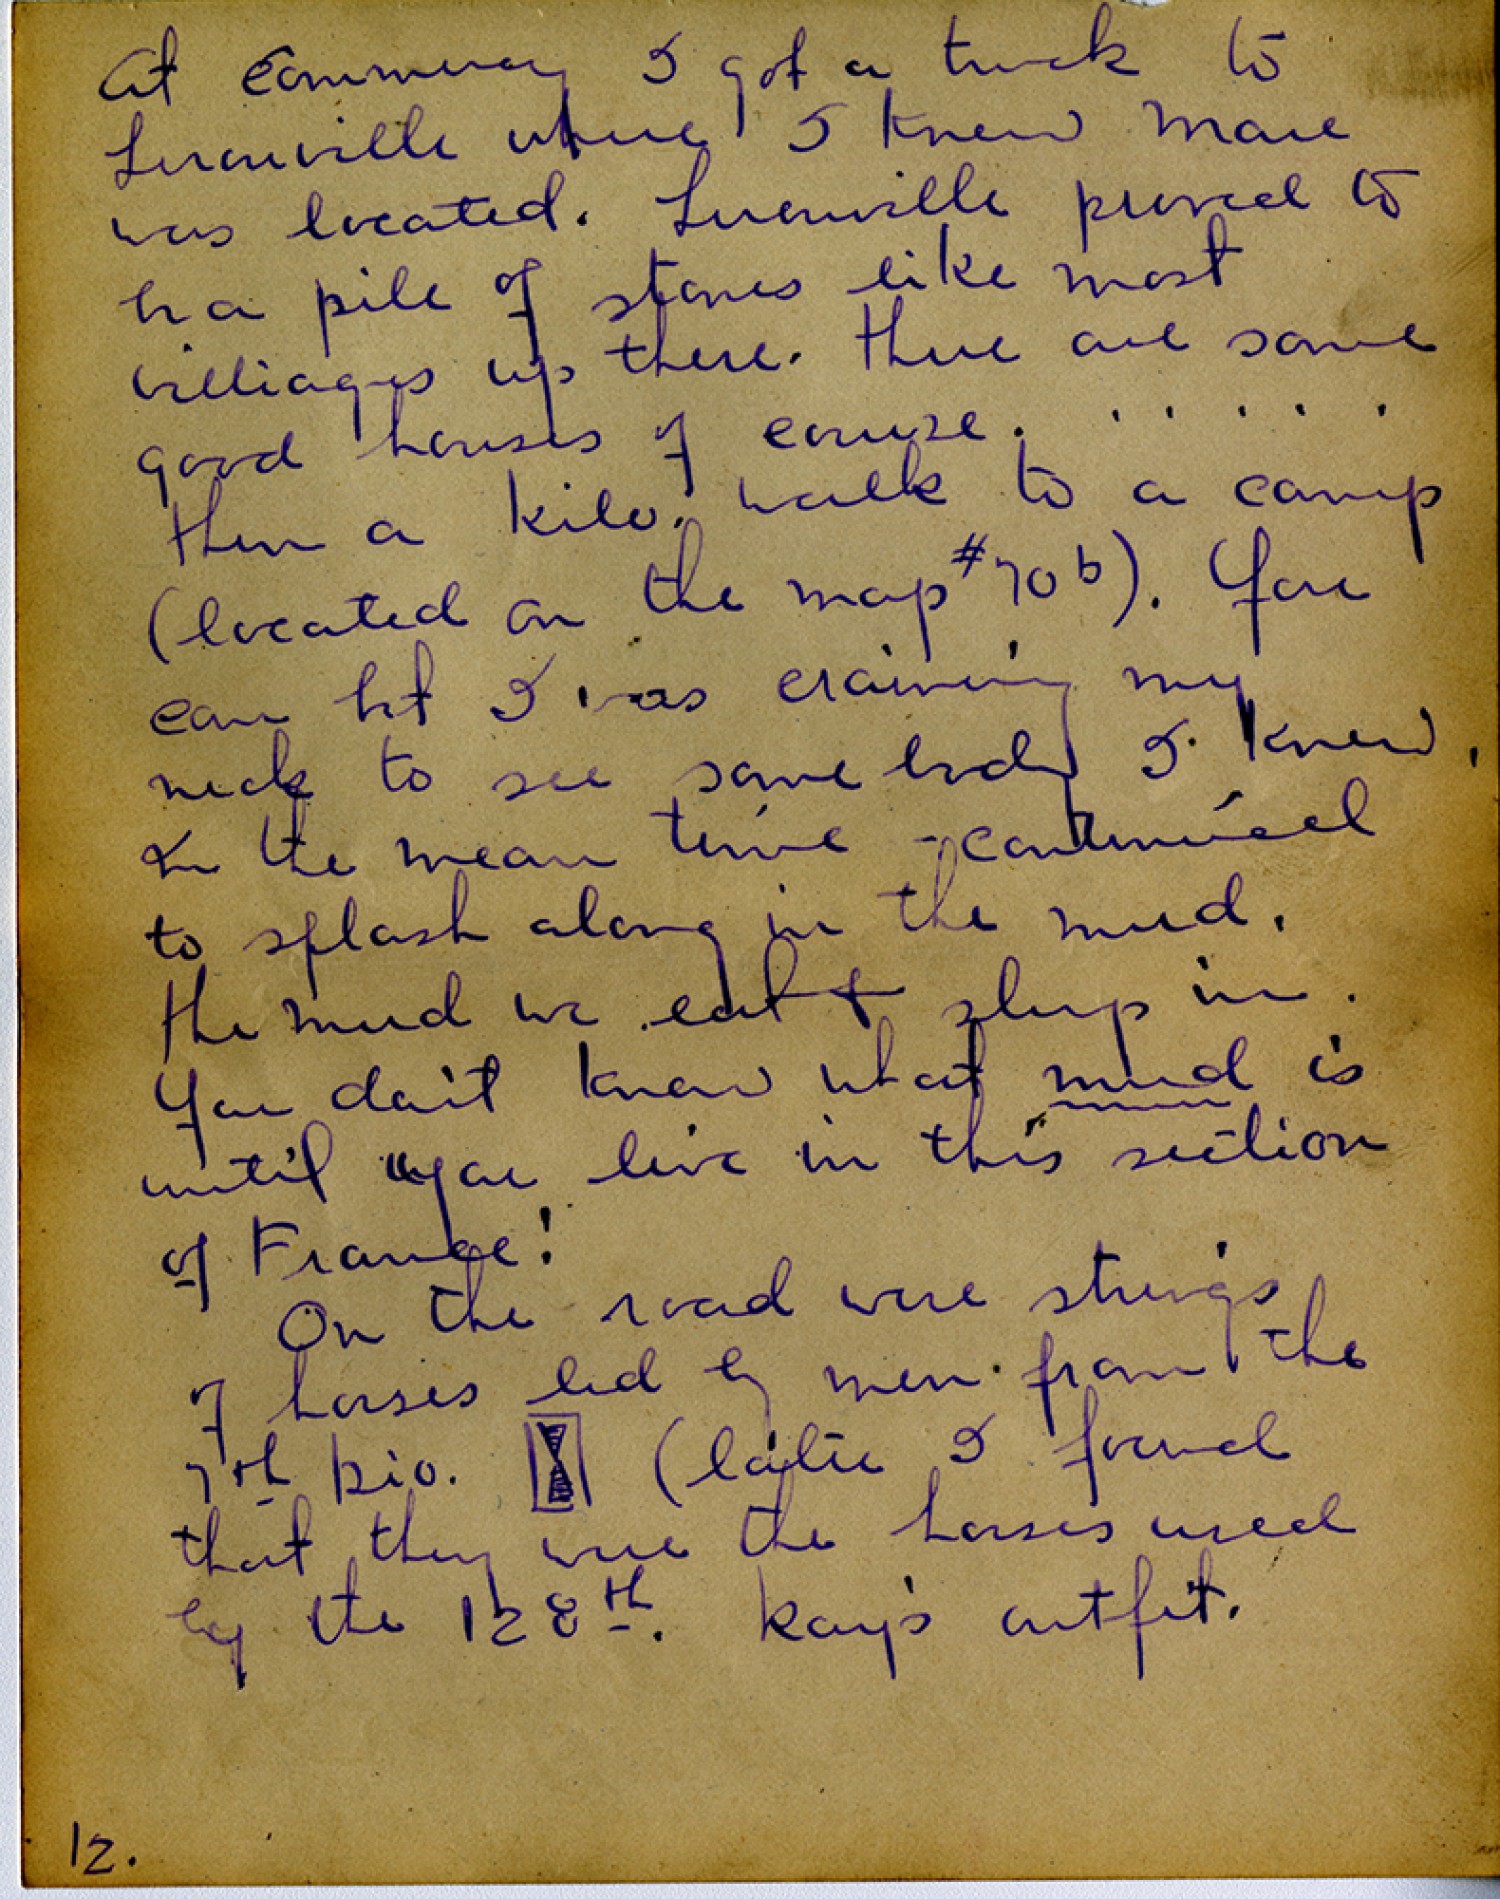 At Commercy I got a truck to
Lerouville where I knew Mare
was located. Lerouville proved to
be a pile of stones like most
villiages up there. There are some
good houses of course. . . . . .
Then a kilo. walk to a camp
(located on the map #70 b). You
can bet I was craining my
neck to see some body I knew,
In the mean time - continued
to splash along in the mud.
The mud we eat & sleep in.
You don't know what mud is
until you live in this section
of France!
On the road were strings
of horses led by men from the
7th Div. (later I found
that they were the horses used
by the 128th. Kay's outfit.
12.